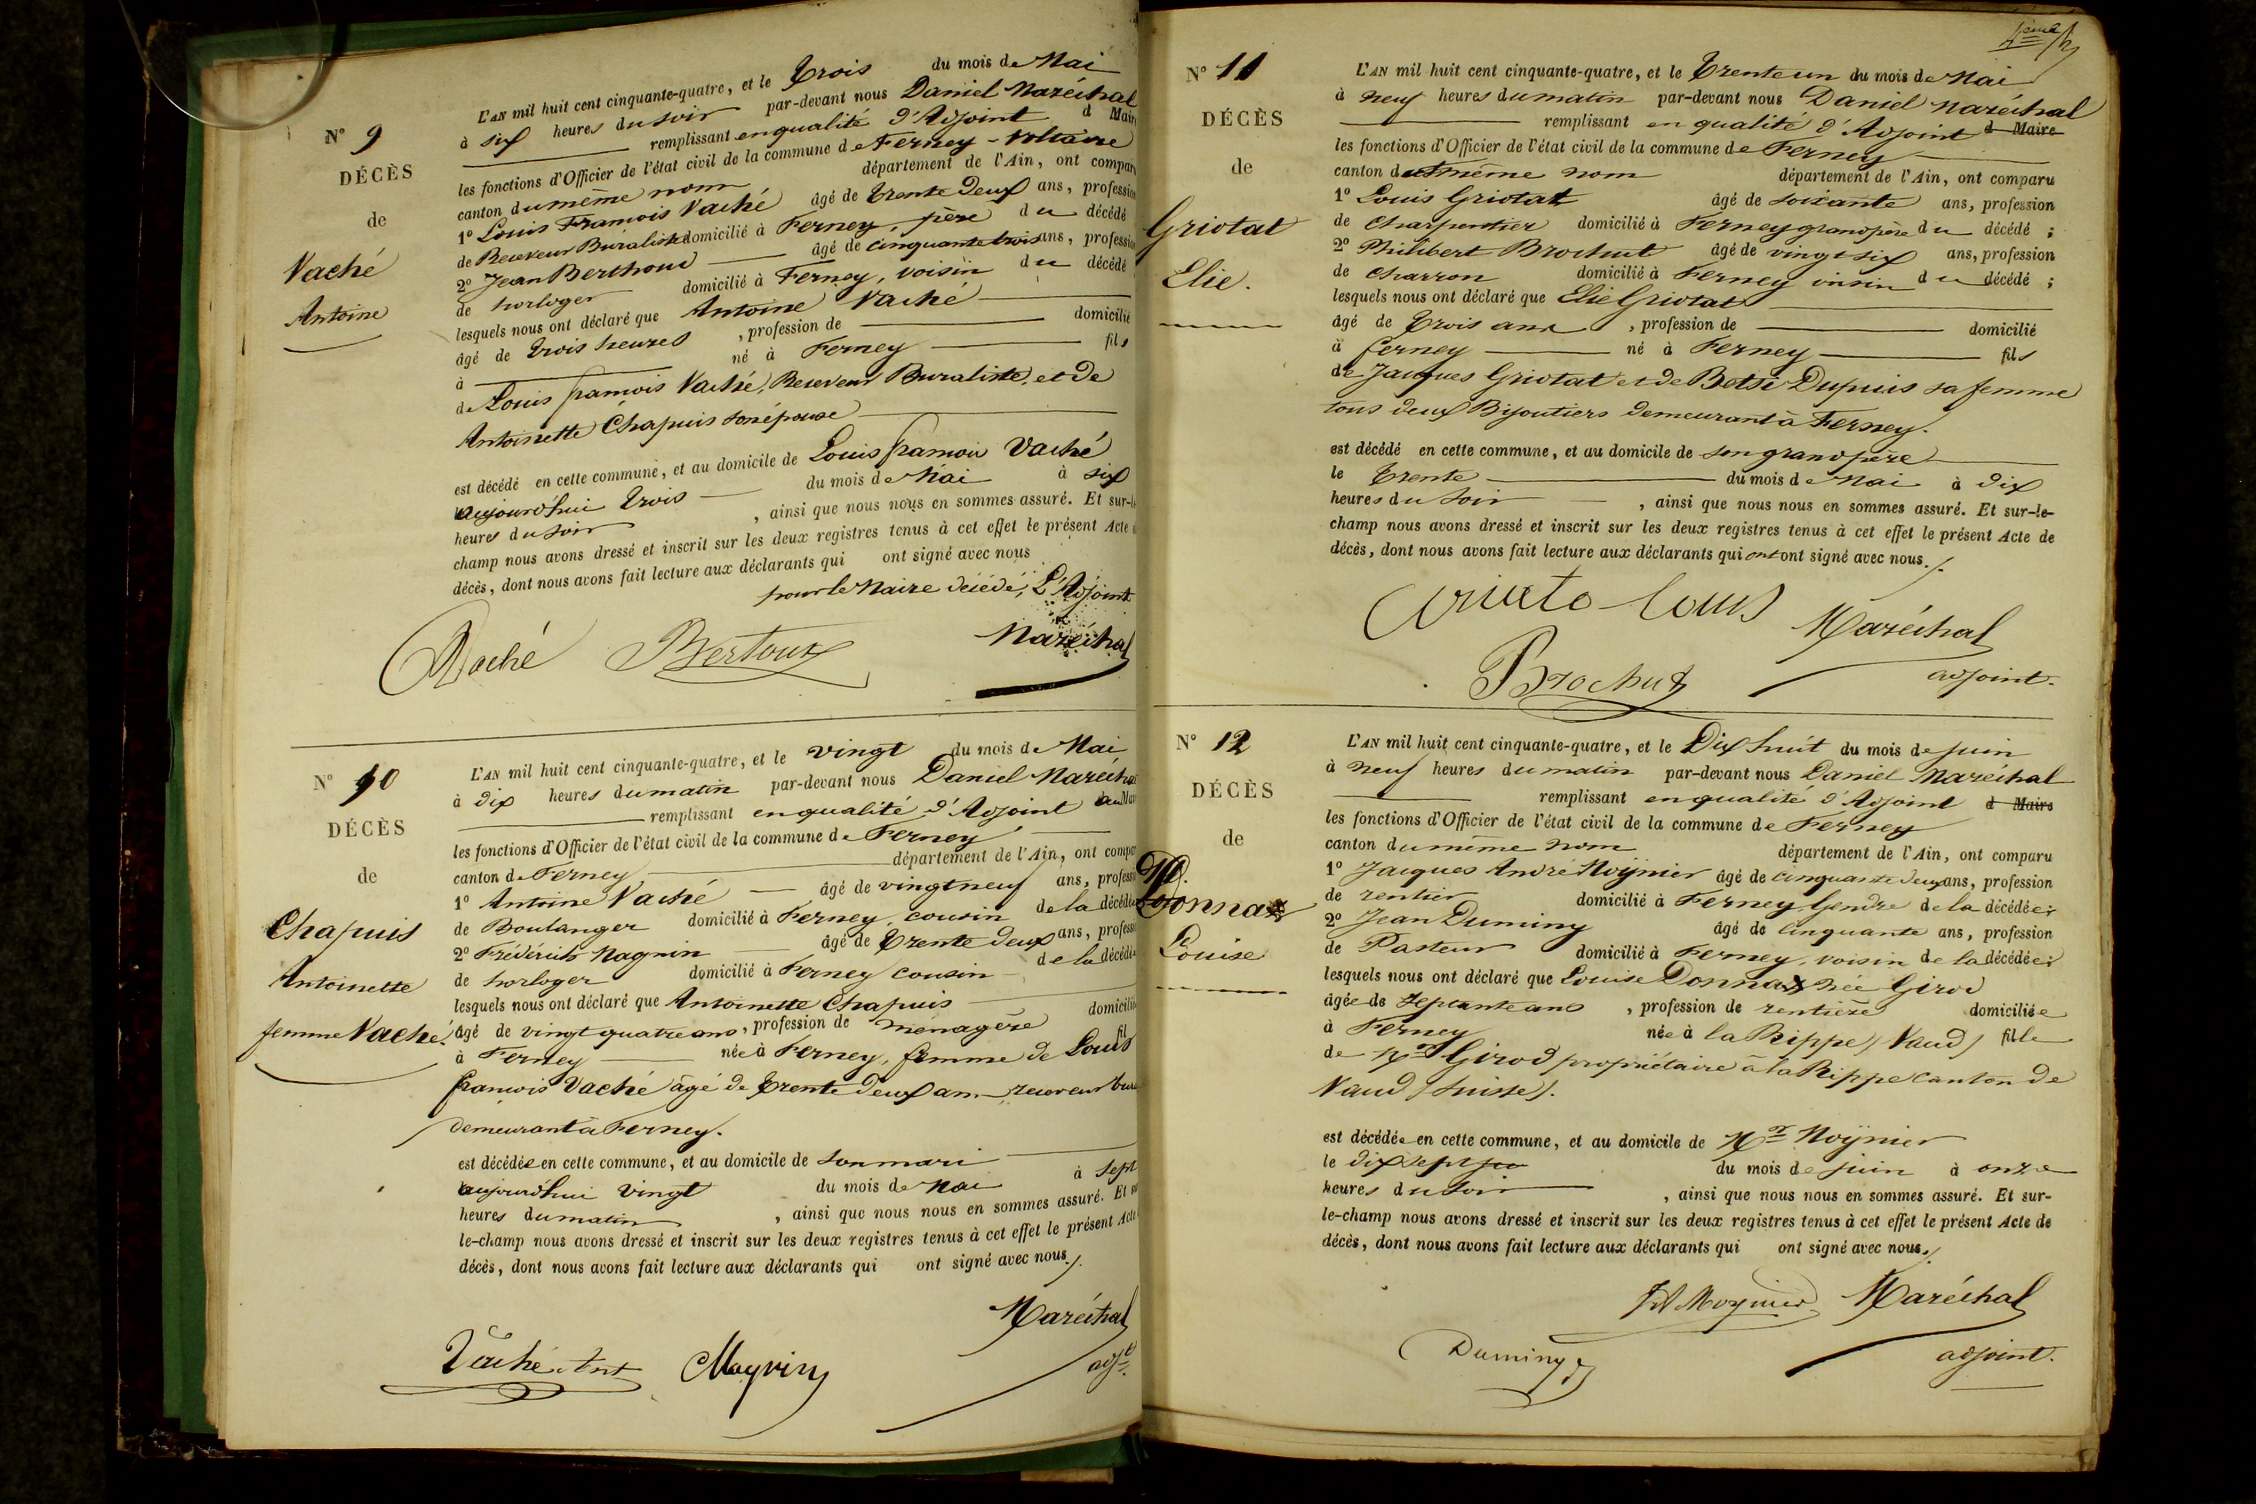 N° 9
DÉCÈS
de
Vaché
Antoine
L'AN mil huit cent cinquante-quatre, et le Trois du mois de Mai
à six heures du soir par-devant nous Daniel Maréchal
remplissant en qualité d'Adjoint d Maire
les fonctions d'Officier de l'état civil de la commune de Ferney-Voltaire
canton du même nom département de l'Ain, ont comparu
1° Louis François Vaché âgé de trente deux ans, profession
de Receveur Buraliste domicilié à Ferney, père du décédé
2° Jean Berthoud âgé de cinquante trois ans, profession
de horloger domicilié à Ferney, voisin du décédé
lesquels nous ont déclaré que Antoine Vaché
âgé de trois heures, profession de domicilié
à né à Ferney fils
de Louis françois Vaché, Receveur Buraliste, et de
Antoinette Chapuis son épouse
est décédé en cette commune, et au domicile de Louis françois Vaché
aujourd'hui trois du mois de Mai à six
heures du soir, ainsi que nous nous en sommes assuré. Et sur-le
champ nous avons dressé et inscrit sur les deux registres tenus à cet effet le présent Acte
décès, dont nous avons fait lecture aux déclarants qui ont signé avec nous
pour le Maire décédé, L'Adjoint
Vaché Bertoux Maréchal
N° 10
DÉCÈS
de
Chapuis
Antoinette
femme Vaché.
L'AN mil huit cent cinquante-quatre, et le vingt du mois de Mai
à dix heures du matin par-devant nous Daniel Maréchal
remplissant en qualité d'Adjoint au Maire
les fonctions d'Officier de l'état civil de la commune de Ferney
canton de Ferney département de l'Ain, ont comparu
1° Antoine Vaché âgé de vingt neuf ans, profession
de Boulanger domicilié à Ferney, cousin de la décédée
2° Frédérich Magnin âgé de trente deux ans, profession
de horloger domicilié à Ferney cousin de la décédée
lesquels nous ont déclaré que Antoinette Chapuis
âgé de vingt quatre ans, profession de ménagère domicilié
à Ferney née à Ferney, femme de Louis fil
françois Vaché âgé de trente deux ans receveur bu
demeurant à Ferney.
est décédée en cette commune, et au domicile de son mari
aujourd'hui vingt du mois de Mai à sept
heures du matin, ainsi que nous nous en sommes assuré. Et sur
le-champ nous avons dressé et inscrit sur les deux registres tenus à cet effet le présent Acte
décès, dont nous avons fait lecture aux déclarants qui ont signé avec nous./.
Maréchal
Vaché Ant Magnin adjt
N° 11
DÉCÈS
de
Griotat
Elie.
L'AN mil huit cent cinquante-quatre, et le Trente un du mois de Mai
à neuf heures du matin par-devant nous Daniel Maréchal
remplissant en qualité d'Adjoint d Maire
les fonctions d'Officier de l'état civil de la commune de Ferney
canton du même nom département de l'Ain, ont comparu
1° Louis Griotat âgé de soixante ans, profession
de Charpentier domicilié à Ferney grand père du décédé ;
2° Philibert Brochut âgé de vingt six ans, profession
de Charron domicilié à Ferney voisin du décédé ;
lesquels nous ont déclaré que Elie Griotat
âgé de trois ans, profession de domicilié
à Ferney né à Ferney fils
de Jacques Griotat et de Betsi Dupuis sa femme
tous deux Bijoutiers demeurant à Ferney.
est décédé en cette commune, et au domicile de son grand père
le trente du mois de Mai à dix
heures du soir, ainsi que nous nous en sommes assuré. Et sur-le-
champ nous avons dressé et inscrit sur les deux registres tenus à cet effet le présent Acte de
décès, dont nous avons fait lecture aux déclarants qui ont ont signé avec nous./.
Maréchal
Brochut adjoint.
N° 12
DÉCÈS
de
Donnax
Louise
L'AN mil huit cent cinquante-quatre, et le Dix huit du mois de juin
à neuf heures du matin par-devant nous Daniel Maréchal
remplissant en qualité d'Adjoint d Maire
les fonctions d'Officier de l'état civil de la commune de Ferney
canton du même nom département de l'Ain, ont comparu
1° Jacques André Moÿnier âgé de cinquante deux ans, profession
de rentier domicilié à Ferney, Gendre de la décédée ;
2° Jean Duminy âgé de cinquante ans, profession
de Pasteur domicilié à Ferney, voisin de la décédée ;
lesquels nous ont déclaré que Louise Donnax née Girod
âgée de septante ans, profession de rentière domiciliée
à Ferney née à la Rippe (Vaud) fille
de Mr Girod propriétaire à la Rippe canton de
Vaud (Suisse).
est décédée en cette commune, et au domicile de Mr Moÿnier
le dix sept du mois de juin à onze
heures du soir, ainsi que nous nous en sommes assuré. Et sur-
le-champ nous avons dressé et inscrit sur les deux registres tenus à cet effet le présent Acte de
décès, dont nous avons fait lecture aux déclarants qui ont signé avec nous./.
JA Moynier Maréchal
Duminy adjoint.